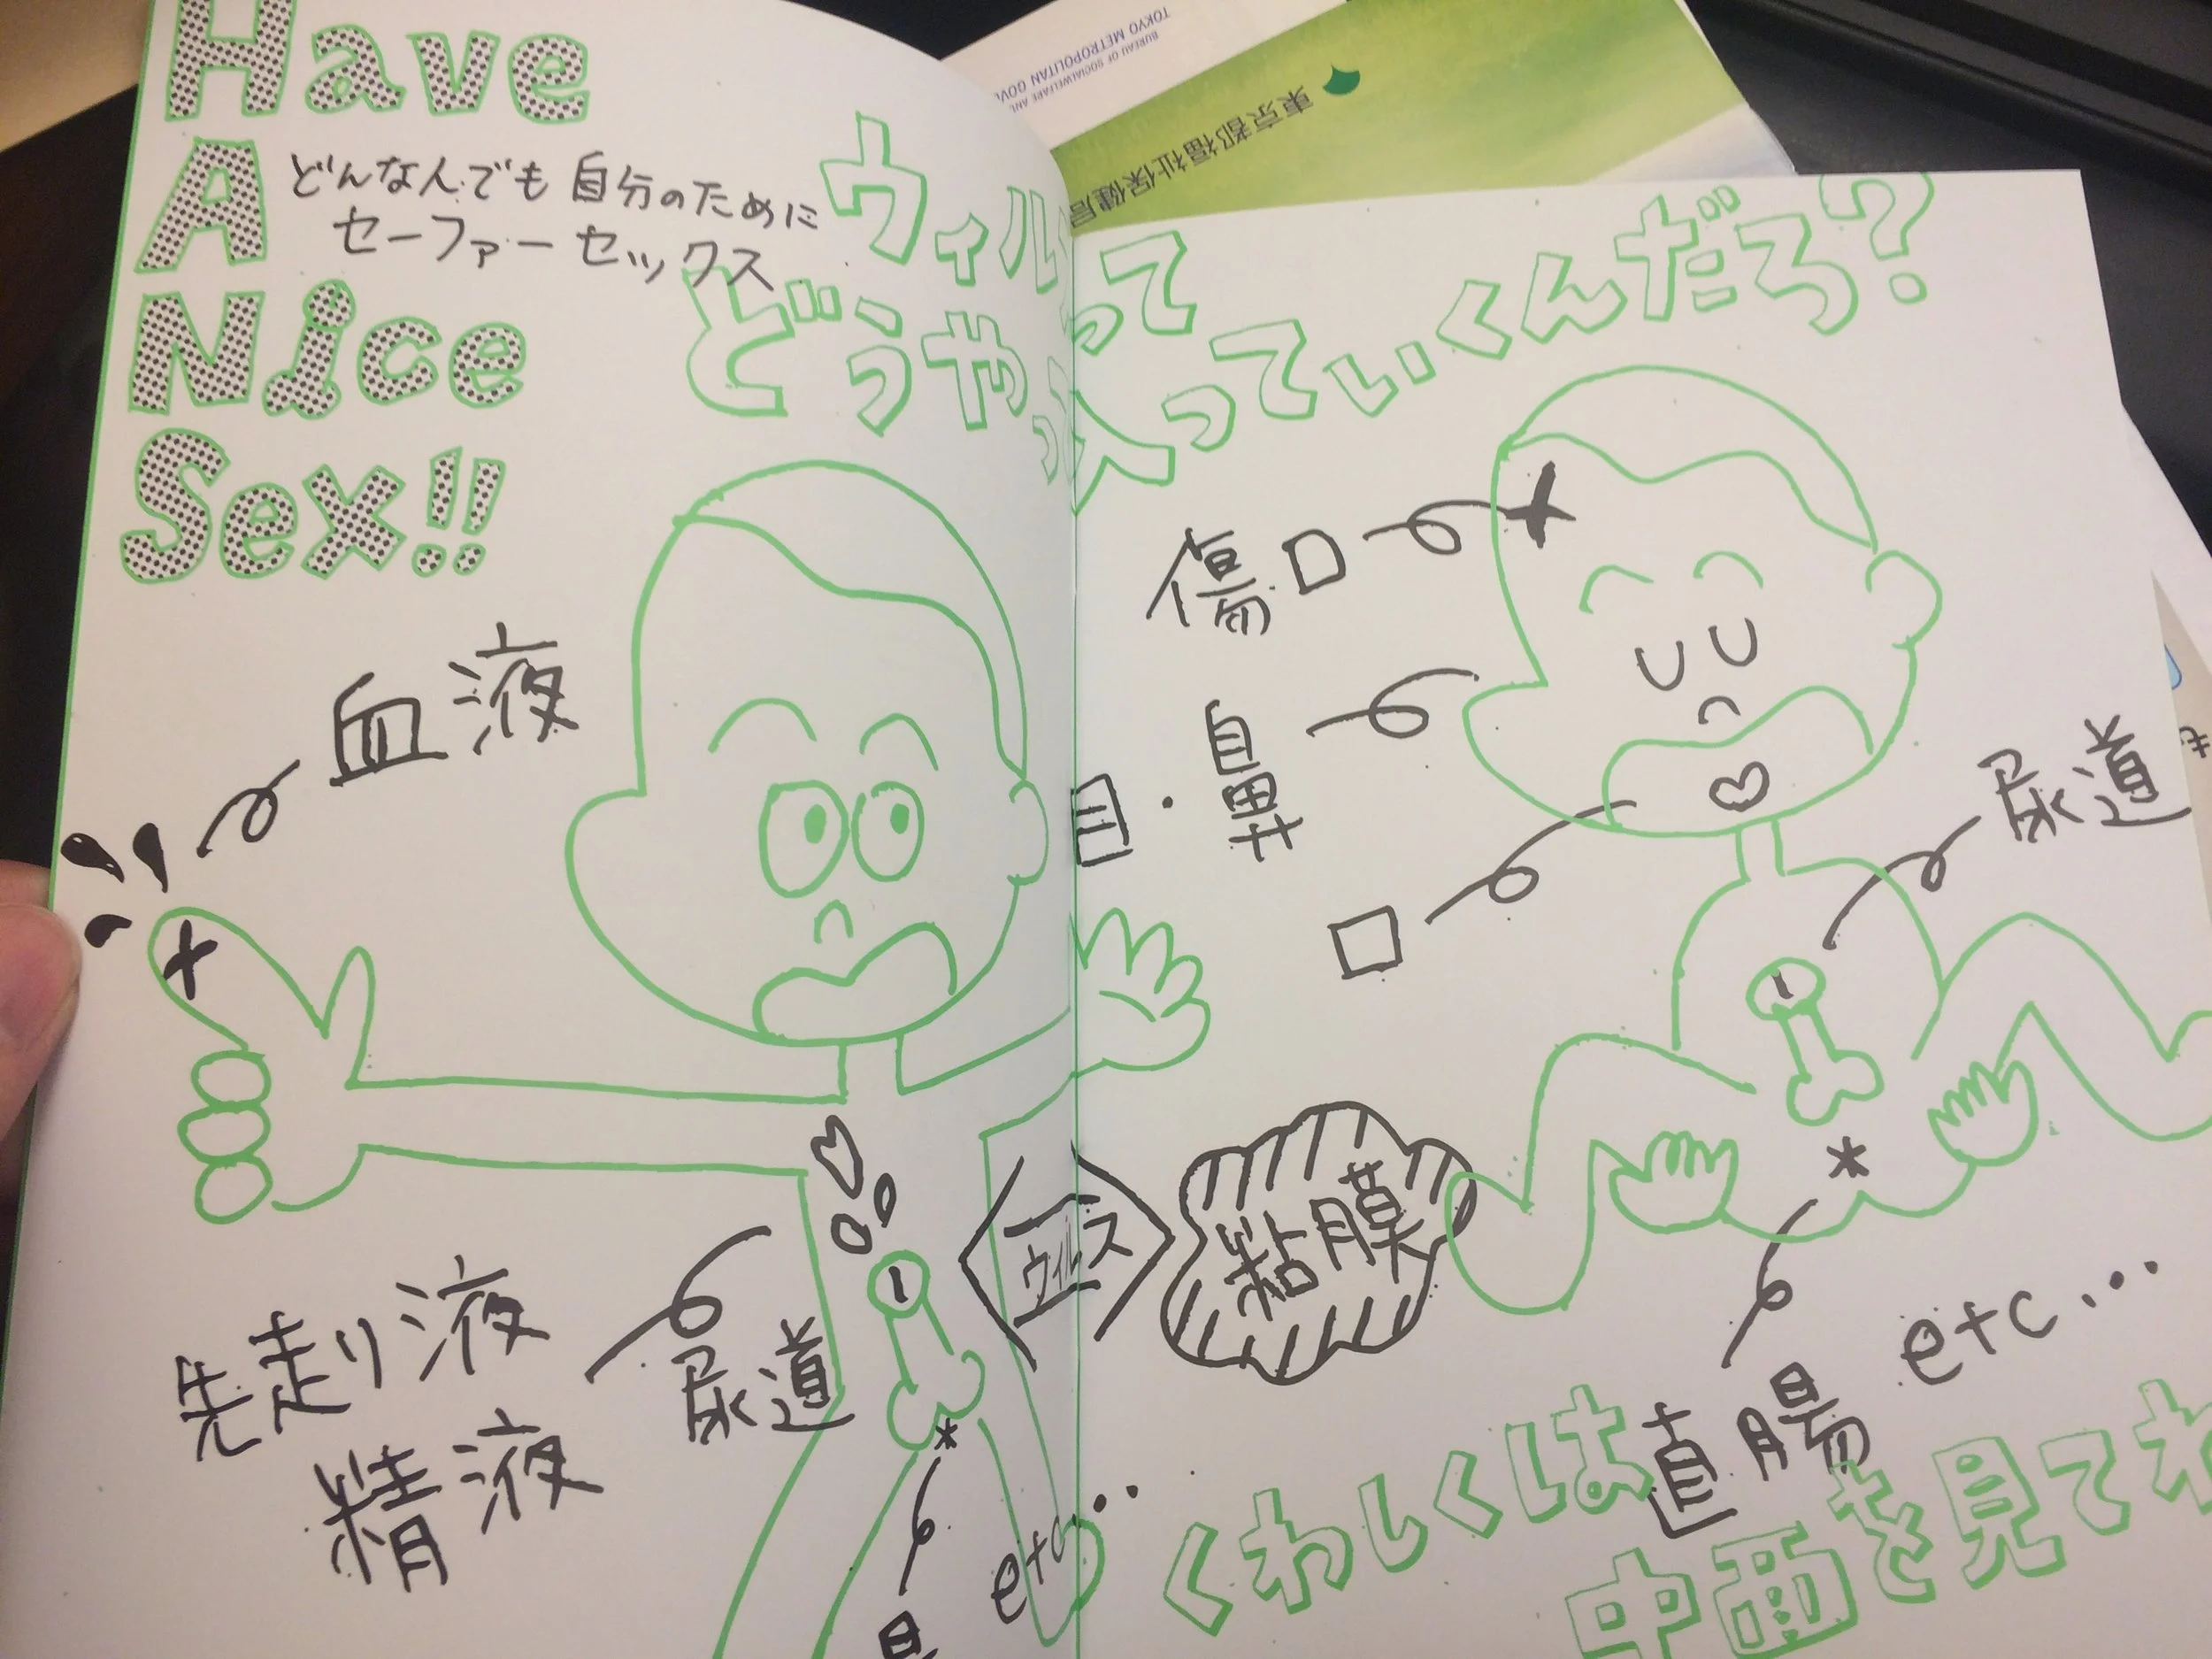 Have
A
Nice
Sex!!
どんなんでも 自分のために
セーファーセックス
ウィルスって
どうやって入っていくんだろ?
血液
先走り液
精液
尿道
etc...
ウィルス
粘膜
傷口
目・鼻
口
尿道
直腸
etc...
くわしくは
中面を見てね
TOKYO METROPOLITAN GOV
BUREAU OF SOCIAL WELFARE AND
東京都福祉保健局